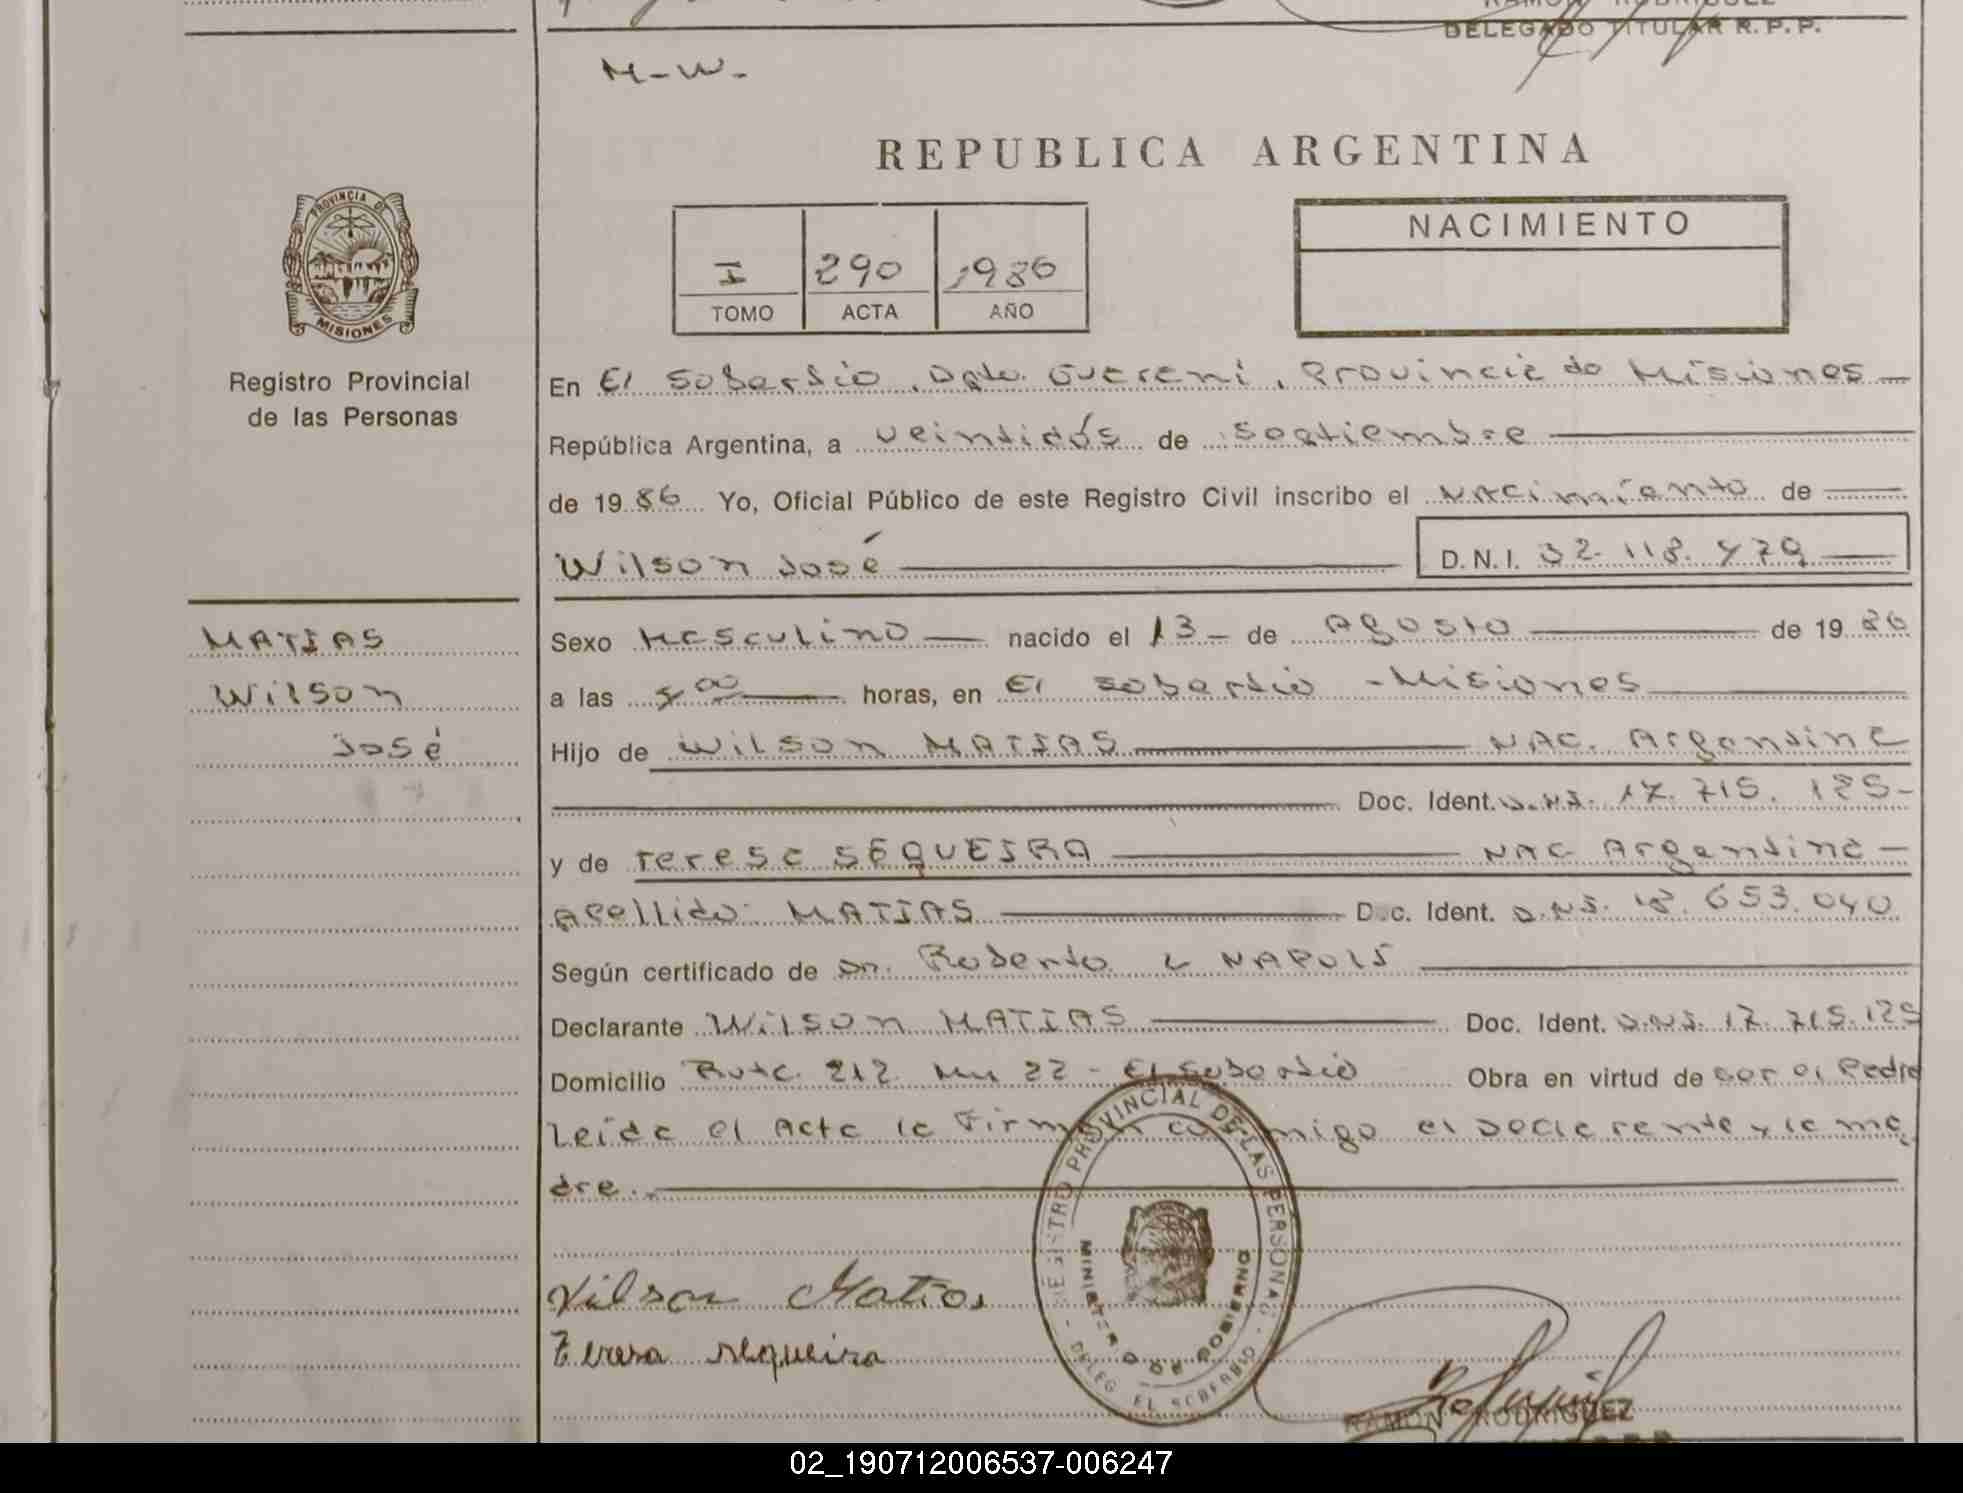 RAMON RODRIGUEZ
DELEGADO TITULAR R.P.P.
M-W-
REPUBLICA ARGENTINA
PROVINCIA DE
MISIONES
Registro Provincial
de las Personas
I 290 1986
TOMO ACTA AÑO
NACIMIENTO
En El Soberbio, Dpto. Guarani, Provincia de Misiones
República Argentina, a veintidós de Septiembre
de 1986 Yo, Oficial Público de este Registro Civil inscribo el NACimiento de
Wilson José D.N.I. 32.118.479
MATIAS
Wilson
José
Sexo Masculino nacido el 13- de Agosto de 1986
a las 4,00 horas, en El Soberbio -Misiones
Hijo de Wilson MATIAS NAC. Argentina
Doc. Ident. D.N.I. 17.715.125-
y de Teresa SEQUEIRA NAC Argentina-
apellido: MATIAS Doc. Ident. D.N.I. 18.653.040
Según certificado de Dr. Roberto L NAPOLI
Declarante Wilson MATIAS Doc. Ident. D.N.I. 17.715.125
Domicilio Ruta 212 Km 22 - El Soberbio Obra en virtud de ser el Padre
Leida el Acta la Firman conmigo el Declarante y la ma
dre.
REGISTRO PROVINCIAL DE LAS PERSONAS
MINISTERIO DE GOBIERNO
- DELEG. EL SOBERBIO -
Vilson Matias
Teresa sequeira
RAMON RODRIGUEZ
02_190712006537-006247